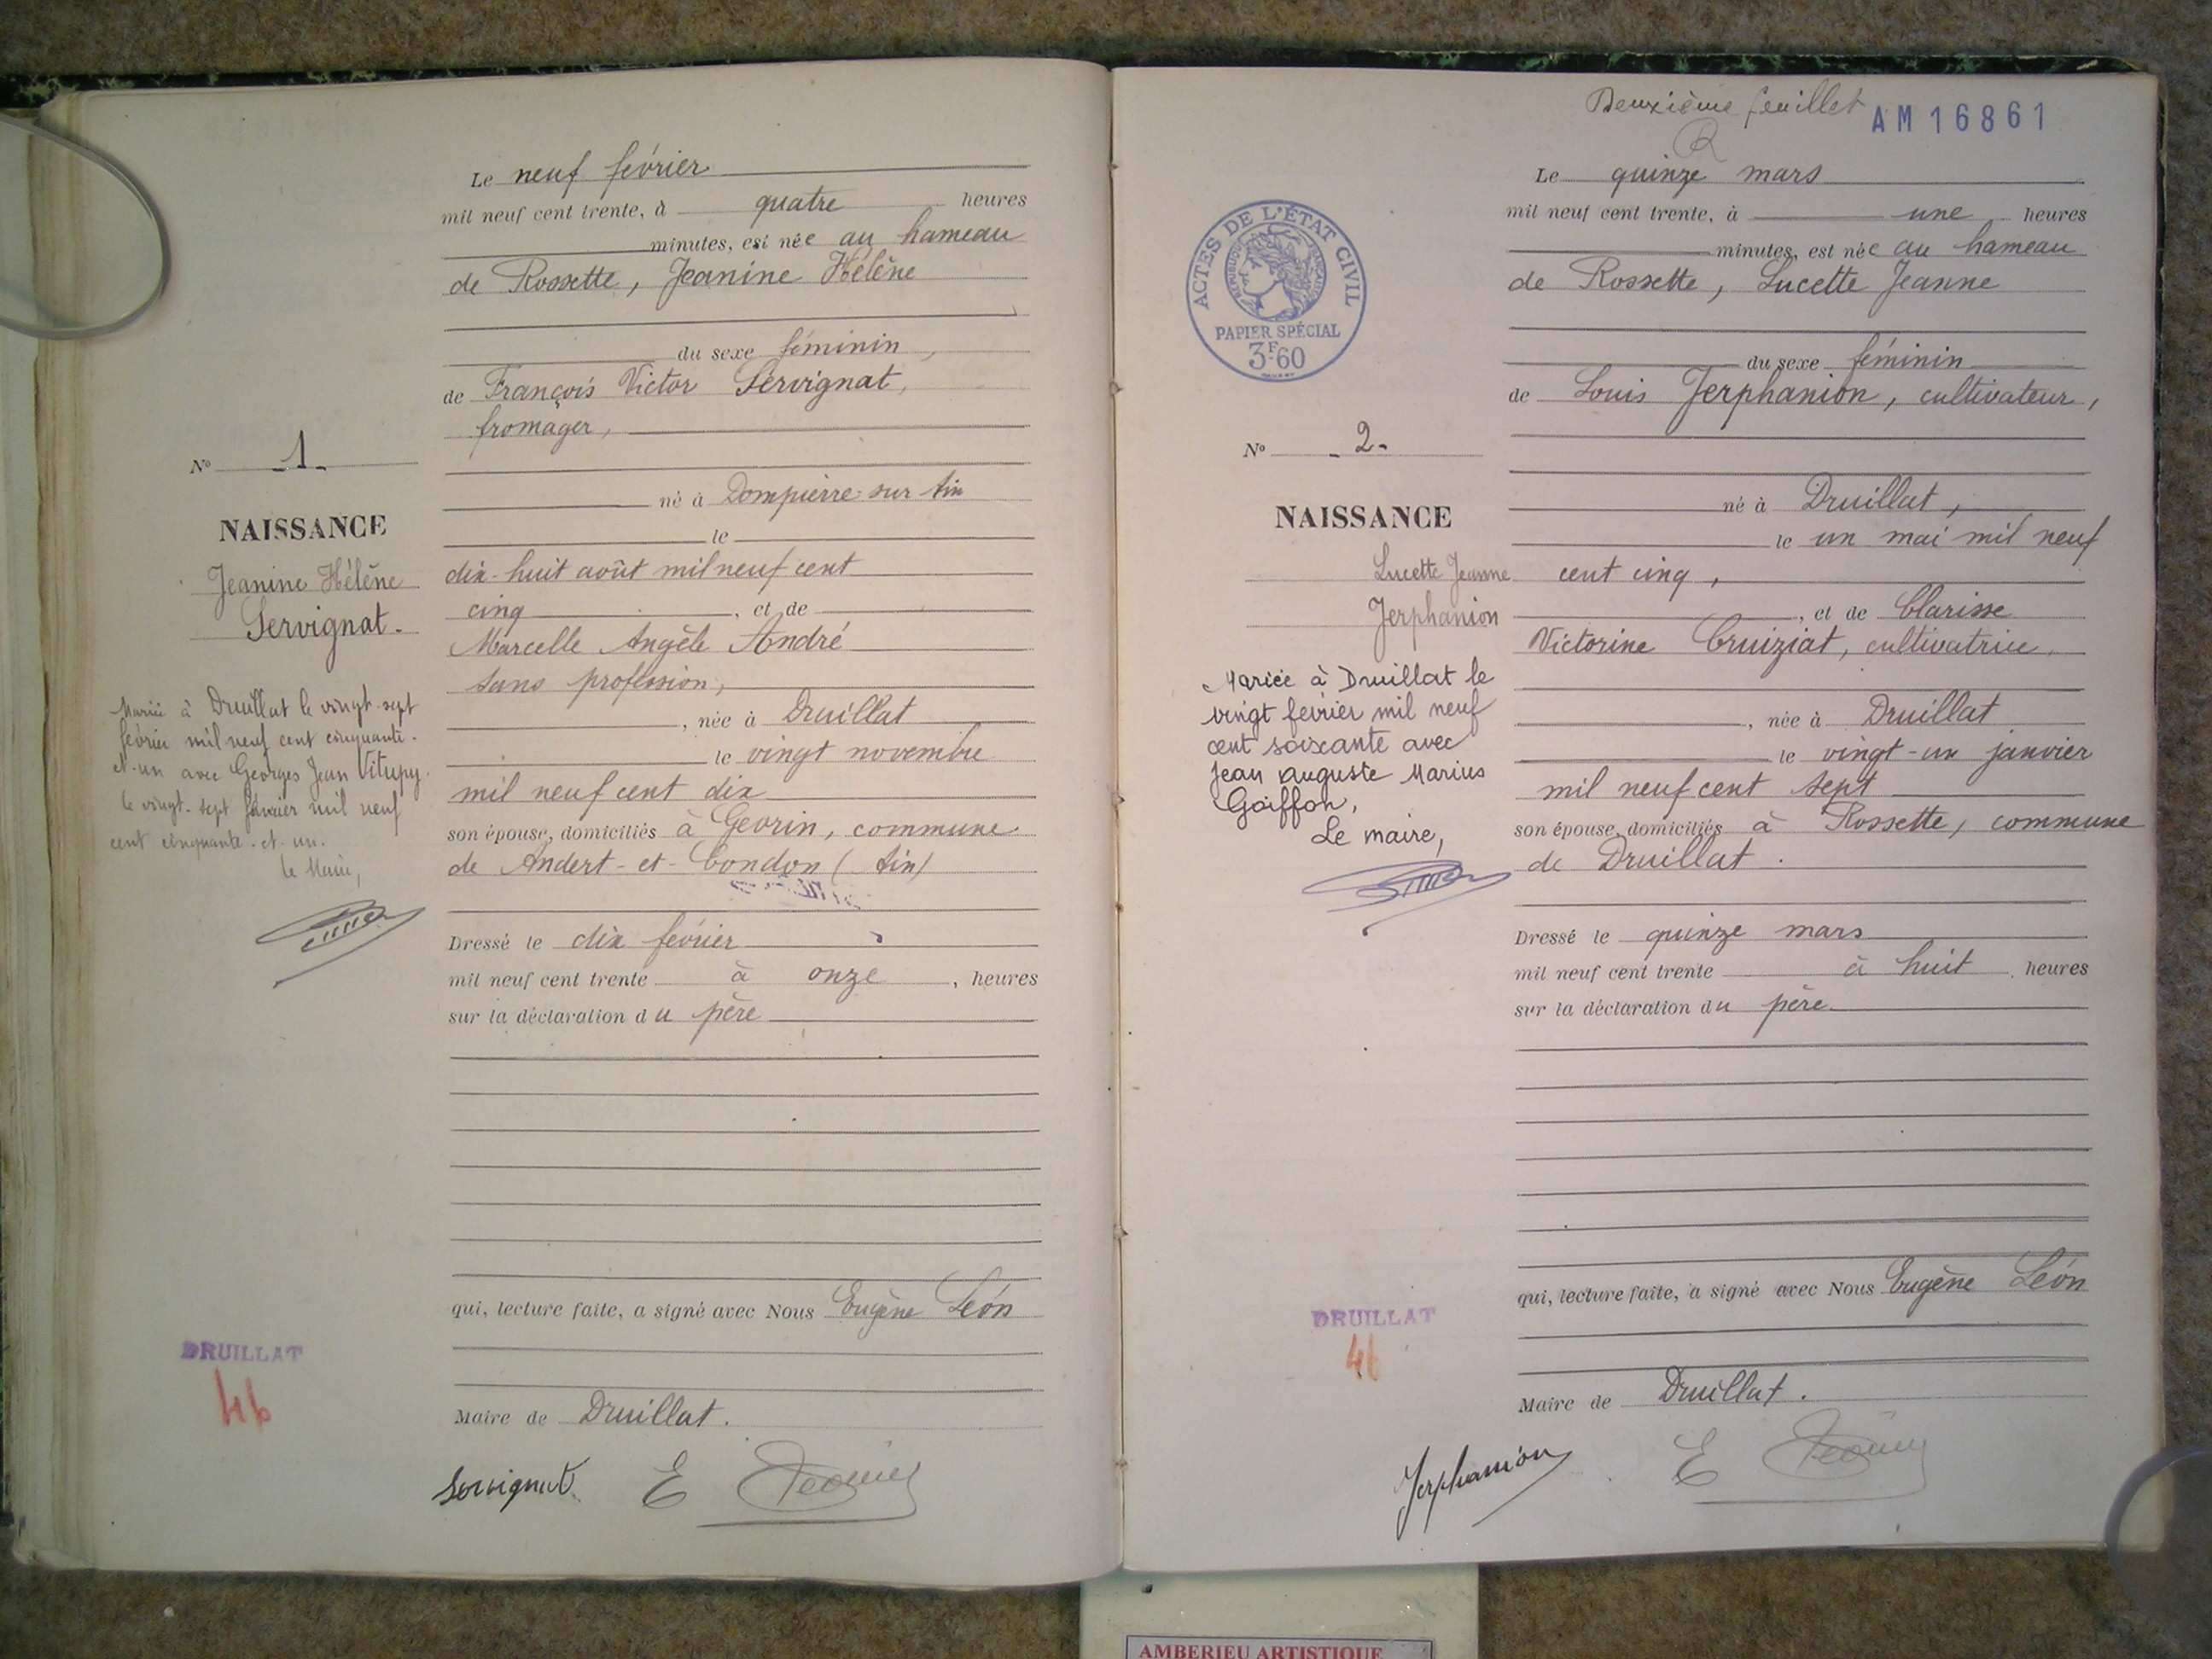 Le neuf février
mil neuf cent trente, à quatre heures
minutes, est née au hameau
de Rossette, Jeanine Hélène
du sexe féminin,
de François Victor Servignat,
fromager,
né à Dompierre-sur-Ain
le
dix-huit août mil neuf cent
cinq, et de
Marcelle Angèle André
sans profession,
, née à Druillat
le vingt novembre
mil neuf cent dix
son épouse, domiciliés à Gevrin, commune
de Andert-et-Condon (Ain)
Dressé le dix février
mil neuf cent trente à onze, heures
sur la déclaration du père
qui, lecture faite, a signé avec Nous Eugène Léon
Maire de Druillat.
Servignat E
No -1-
NAISSANCE
Jeanine Hélène
Servignat.
Mariée à Druillat le vingt-sept
février mil neuf cent cinquante-
et-un avec Georges Jean Vitupy.
le vingt-sept février mil neuf
cent cinquante-et-un.
le Maire,
DRUILLAT
46
Deuxième feuillet AM16861
Le quinze mars
mil neuf cent trente, à une heures
minutes, est née au hameau
de Rossette, Lucette Jeanne
du sexe féminin
de Louis Jerphanion, cultivateur,
né à Druillat,
le un mai mil neuf
cent cinq,
, et de Clarisse
Victorine Cruiziat, cultivatrice,
, née à Druillat
le vingt-un janvier
mil neuf cent sept
son épouse, domiciliés à Rossette, commune
de Druillat.
Dressé le quinze mars
mil neuf cent trente à huit heures
sur la déclaration du père
qui, lecture faite, a signé avec Nous Eugène Léon
Maire de Druillat.
Jerphanion E
ACTES DE L'ÉTAT CIVIL
RÉPUBLIQUE FRANÇAISE
PAPIER SPÉCIAL
3F60
No -2-
NAISSANCE
Lucette Jeanne
Jerphanion
Mariée à Druillat le
vingt février mil neuf
cent soixante avec
Jean Auguste Marius
Goiffon,
Le maire,
DRUILLAT
46
AMBERIEU ARTISTIQUE